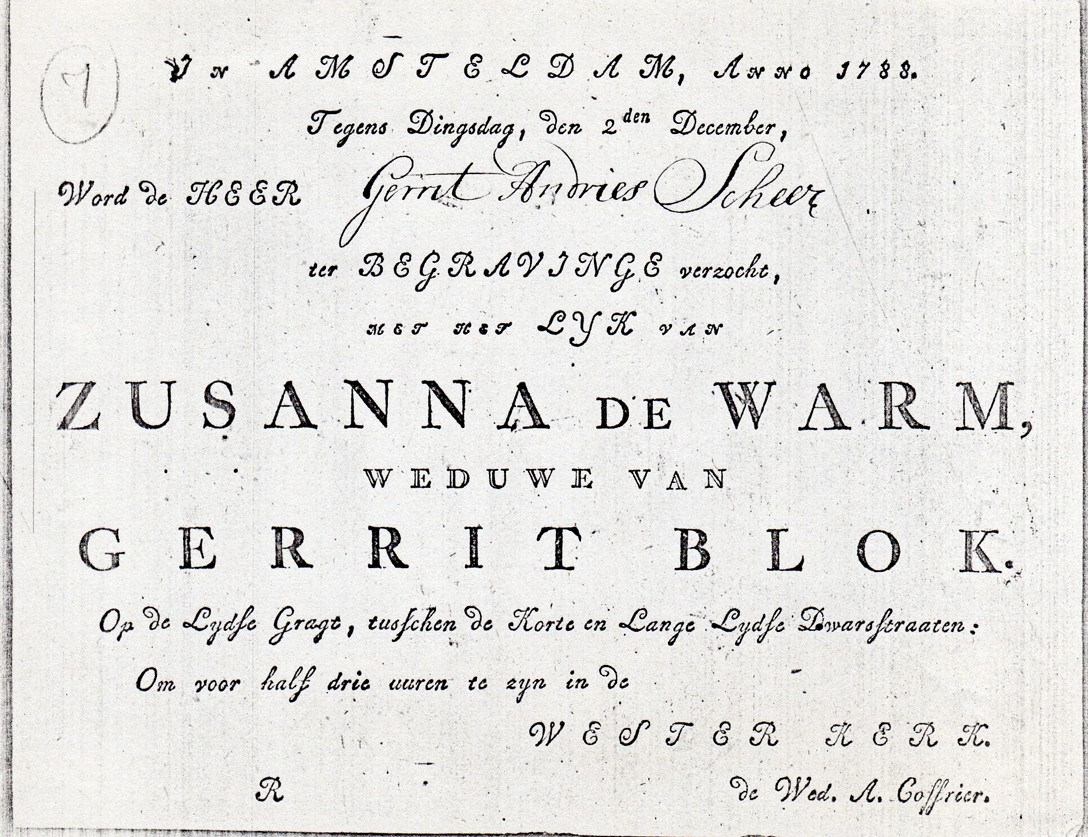 7
In AMSTELDAM, Anno 1788.
Tegens Dingsdag, den 2den December,
Word de HEER Gerrit Andries Scheer
ter BEGRAVINGE verzocht,
MET HET LYK VAN
ZUSANNA DE WARM,
WEDUWE VAN
GERRIT BLOK.
Op de Lydſe Gragt, tusſchen de Korte en Lange Lydſe Dwarsſtraaten:
Om voor half drie uuren te zyn in de
WESTER KERK.
R de Wed. A. Coſſrier.